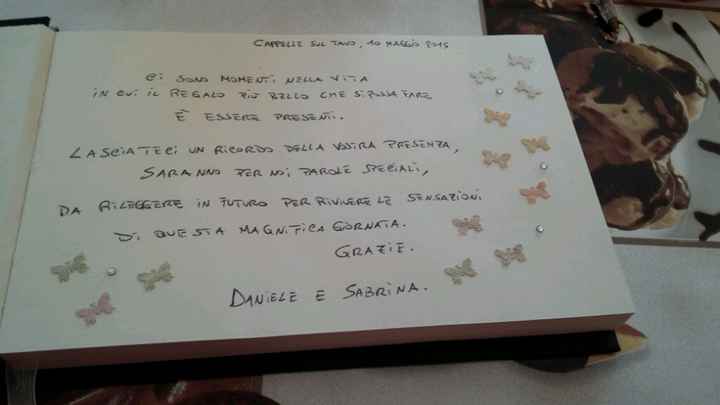 CAPPELLE SUL TAVO, 10 MAGGIO 2015
CI SONO MOMENTI NELLA VITA
IN CUI IL REGALO PIÙ BELLO CHE SI POSSA FARE
È ESSERE PRESENTI.
LASCIATECI UN RICORDO DELLA VOSTRA PRESENZA,
SARANNO PER NOI PAROLE SPECIALI,
DA RILEGGERE IN FUTURO PER RIVIVERE LE SENSAZIONI
DI QUESTA MAGNIFICA GIORNATA.
GRAZIE.
DANIELE E SABRINA.